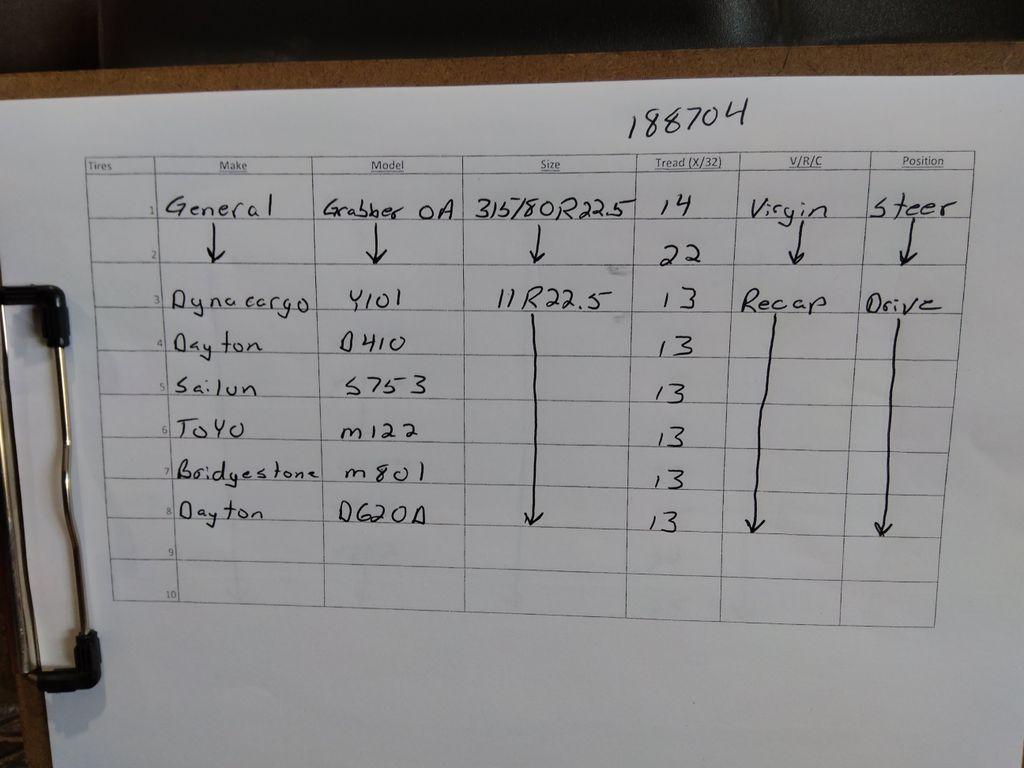 188704
Tires Make Model Size Tread (X/32) V/R/C Position
1 General Grabber OA 315/80R22.5 14 Virgin Steer
2 ↓ ↓ ↓ 22 ↓ ↓
3 Dynacargo Y101 11R22.5 13 Recap Drive
4 Dayton D410 13
5 Sailun S753 13
6 TOYO m122 13
7 Bridgestone m801 13
8 Dayton D620D ↓ 13 ↓ ↓
9
10